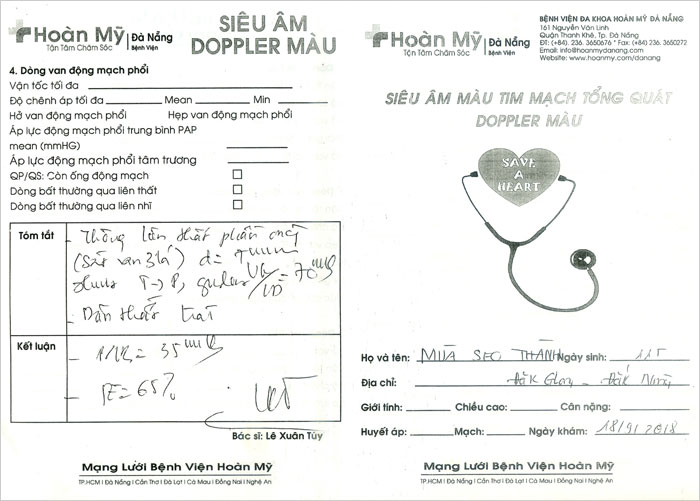 Hoàn Mỹ
Tận Tâm Chăm Sóc
Đà Nẵng
Bệnh Viện
SIÊU ÂM
DOPPLER MÀU
4. Dòng van động mạch phổi
Vận tốc tối đa
Độ chênh áp tối đa Mean Min
Hở van động mạch phổi Hẹp van động mạch phổi
Áp lực động mạch phổi trung bình PAP
mean (mmHG)
Áp lực động mạch phổi tâm trương
QP/QS: Còn ống động mạch
Dòng bất thường qua liên thất
Dòng bất thường qua liên nhĩ
Tóm tắt
- Thông liên thất phần màng
(Sát van 3 lá) d=
T→P,
- Dãn thất trái
Kết luận
= 35
- = 65%
Bác sĩ: Lê Xuân Túy
Mạng Lưới Bệnh Viện Hoàn Mỹ
TP.HCM I Đà Nẵng I Cần Thơ I Đà Lạt I Cà Mau I Đồng Nai I Nghệ An
Hoàn Mỹ
Tận Tâm Chăm Sóc
Đà Nẵng
Bệnh Viện
BỆNH VIỆN ĐA KHOA HOÀN MỸ ĐÀ NẴNG
161 Nguyễn Văn Linh
Quận Thanh Khê, Tp. Đà Nẵng
ĐT: (+84) 236. 3650676 * Fax: (+84) 236. 3650272
Email: info@hoanmydanang.com
Website: www.hoanmy.com/danang
SIÊU ÂM MÀU TIM MẠCH TỔNG QUÁT
DOPPLER MÀU
SAVE
A
HEART
Họ và tên: MÙA SEO THÀNH Ngày sinh: 11T
Địa chỉ: Đăk Glong - Đăk Nông
Giới tính: Chiều cao: Cân nặng:
Huyết áp: Mạch: Ngày khám: 18/9/2018
Mạng Lưới Bệnh Viện Hoàn Mỹ
TP.HCM I Đà Nẵng I Cần Thơ I Đà Lạt I Cà Mau I Đồng Nai I Nghệ An